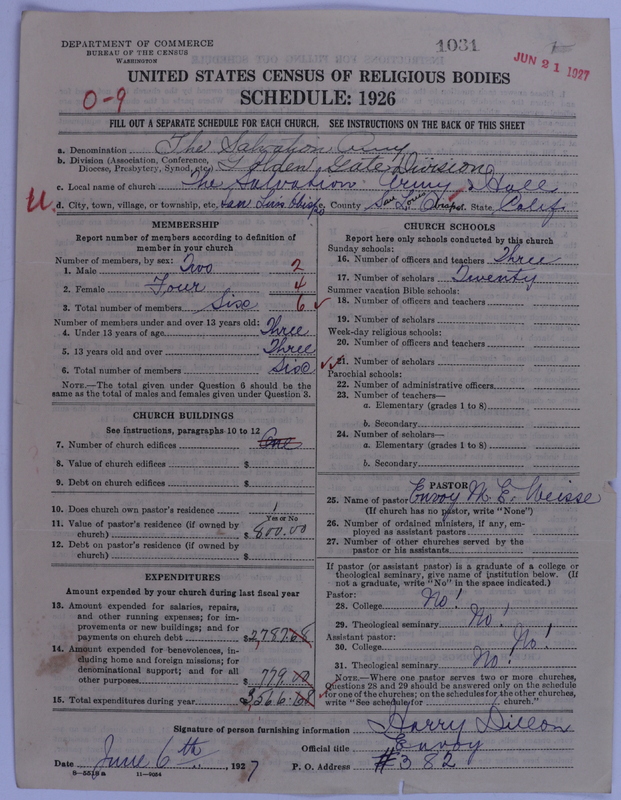 DEPARTMENT OF COMMERCE
BUREAU OF THE CENSUS
WASHINGTON
1031
JUN 21 1927
UNITED STATES CENSUS OF RELIGIOUS BODIES
0-9
SCHEDULE: 1926
FILL OUT A SEPARATE SCHEDULE FOR EACH CHURCH. SEE INSTRUCTIONS ON THE BACK OF THIS SHEET
a. Denomination The Salvation Army
b. Division (Association, Conference, Diocese, Presbytery, Synod, etc.) Golden Gate Division
c. Local name of church The Salvation Army Hall
U. d. City, town, village, or township, etc. San Luis Obispo County San Louis Obispo. State Calif.
MEMBERSHIP
Report number of members according to definition of
member in your church
Number of members, by sex:
1. Male Two 2
2. Female Four 4
3. Total number of members Six 6 ✓
Number of members under and over 13 years old:
4. Under 13 years of age Three
5. 13 years old and over Three
6. Total number of members Six ✓
NOTE.—The total given under Question 6 should be the
same as the total of males and females given under Question 3.
CHURCH BUILDINGS
See instructions, paragraphs 10 to 12
7. Number of church edifices One
8. Value of church edifices $
9. Debt on church edifices $
10. Does church own pastor's residence 1
Yes or No
11. Value of pastor's residence (if owned by
church) $ 800.00
12. Debt on pastor's residence (if owned by
church) $
EXPENDITURES
Amount expended by your church during last fiscal year
13. Amount expended for salaries, repairs,
and other running expenses; for im-
provements or new buildings; and for
payments on church debt $2,787.68
14. Amount expended for benevolences, in-
cluding home and foreign missions; for
denominational support; and for all
other purposes 779.00
15. Total expenditures during year 3566.68
CHURCH SCHOOLS
Report here only schools conducted by this church
Sunday schools:
16. Number of officers and teachers Three
17. Number of scholars Twenty
Summer vacation Bible schools:
18. Number of officers and teachers
19. Number of scholars
Week-day religious schools:
20. Number of officers and teachers
21. Number of scholars
Parochial schools:
22. Number of administrative officers
23. Number of teachers—
a. Elementary (grades 1 to 8)
b. Secondary
24. Number of scholars—
a. Elementary (grades 1 to 8)
b. Secondary
PASTOR
25. Name of pastor Envoy M. E. Weisse
(If church has no pastor, write "None")
26. Number of ordained ministers, if any, em-
ployed as assistant pastors
27. Number of other churches served by the
pastor or his assistants
If pastor (or assistant pastor) is a graduate of a college or
theological seminary, give name of institution below. (If
not a graduate, write "No" in the space indicated.)
Pastor:
28. College No!
29. Theological seminary No!
Assistant pastor:
30. College No!
31. Theological seminary No!
NOTE.—Where one pastor serves two or more churches,
Questions 28 and 29 should be answered only on the schedule
for one of the churches; on the schedules for the other churches,
write "See schedule for church."
Signature of person furnishing information Harry Dilson
Official title Envoy
Date June 6th, 1927 P. O. Address #382
8-5518a 11-9034